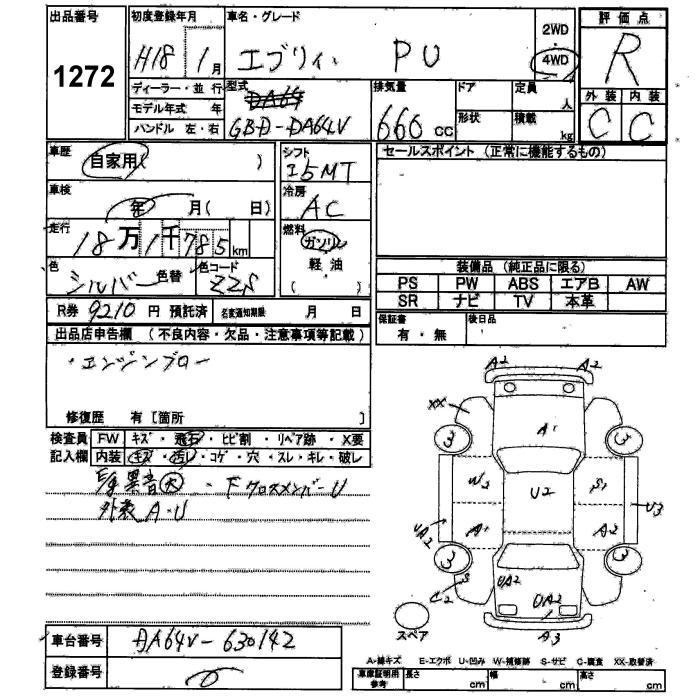 出品番号 初度登録年月 車名・グレード 2WD・4WD 評価点
1272 H18 1月 エブリィ PU R
ディーラー・並行 型式 排気量 ドア 定員 人 外装 内装
モデル年式 年 DA64 形状 積載 kg C C
ハンドル 左・右 GBD-DA64V 660 cc
車歴 自家用 ) シフト I5MT セールスポイント (正常に機能するもの)
車検 年 月( 日) 冷房 AC
走行 18万1千785km 燃料 ガソリン
色 シルバー 色替 色コード Z2S 軽油 ( )
装備品 (純正品に限る)
PS PW ABS エアB AW
SR ナビ TV 本革
R券 9210円 預託済 名変通知期限 月 日 保証書 有・無 後日品
出品店申告欄 (不良内容・欠品・注意事項等記載)
・エンジンブロー
修復歴 有[箇所 ]
検査員 FW キズ・飛石・ヒビ割・リペア跡・X要
記入欄 内装 キズ・汚レ・コゲ・穴・スレ・キレ・破レ
異音大 ・FクロスメンバーU
外装A・U
A2 A2
XX
3 A1 3
W2 U2 S1 U3
UA2 A1 A2
3 3
S UA2 UA2
C2
スペア A3
車台番号 DA64V-630142
登録番号
A-線キズ E-エクボ U-凹み W-補修跡 S-サビ C-腐食 XX-取替済
車庫証明用参考 長さ cm 幅 cm 高さ cm